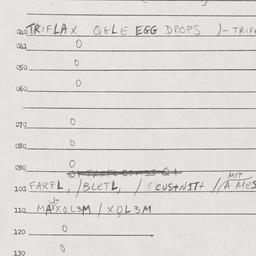 040 TRIFLAX QELE EGG DROPS )- TRIF
041 0
050 0
060 0
070 0
080 0
090 0
100 FARFL, / BLETL, / CUS+NIT+ / MIT A MES
110 MAXOL3M / XOL3M
120 0
130 0